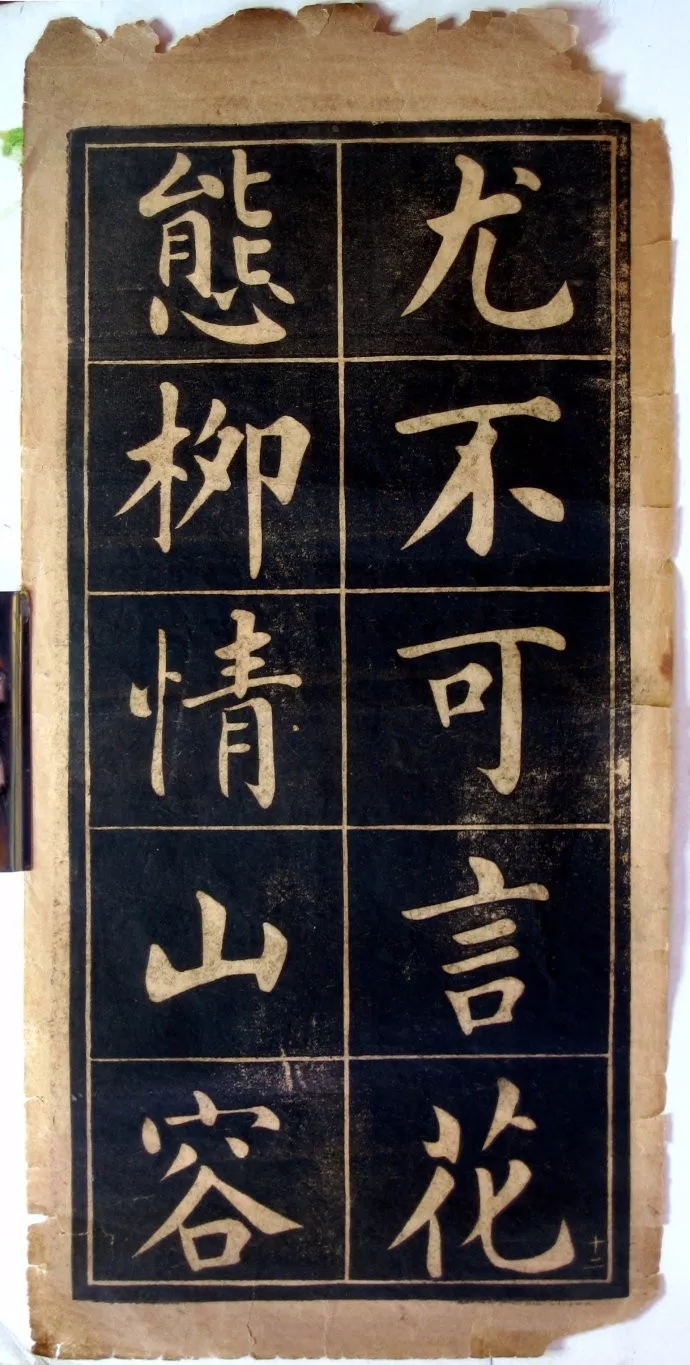 尤不可言花
態柳情山容
十二